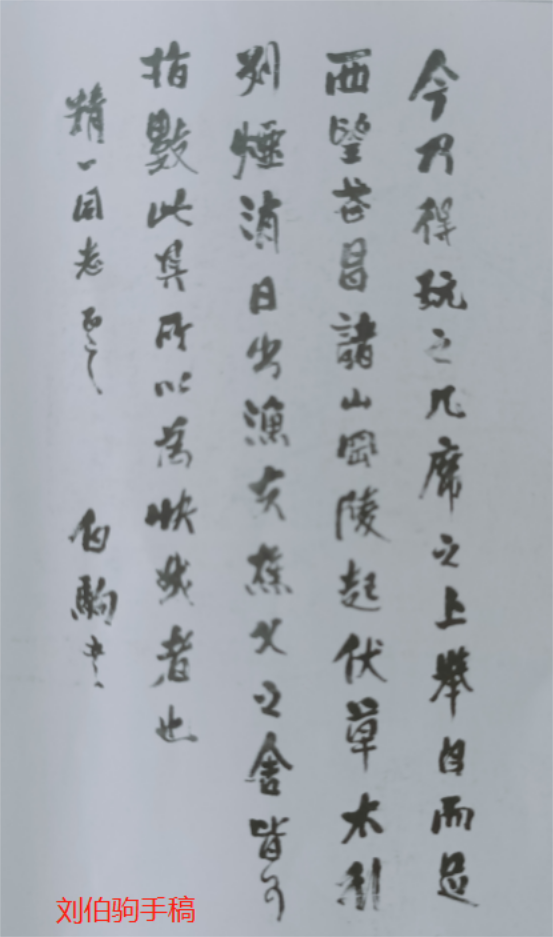 今乃得玩之几席之上舉目而足
西望武昌諸山岡陵起伏草木行
列煙消日出漁夫樵父之舍皆可
指數此其所以為快哉者也
精一同志正之
伯駒書
刘伯驹手稿